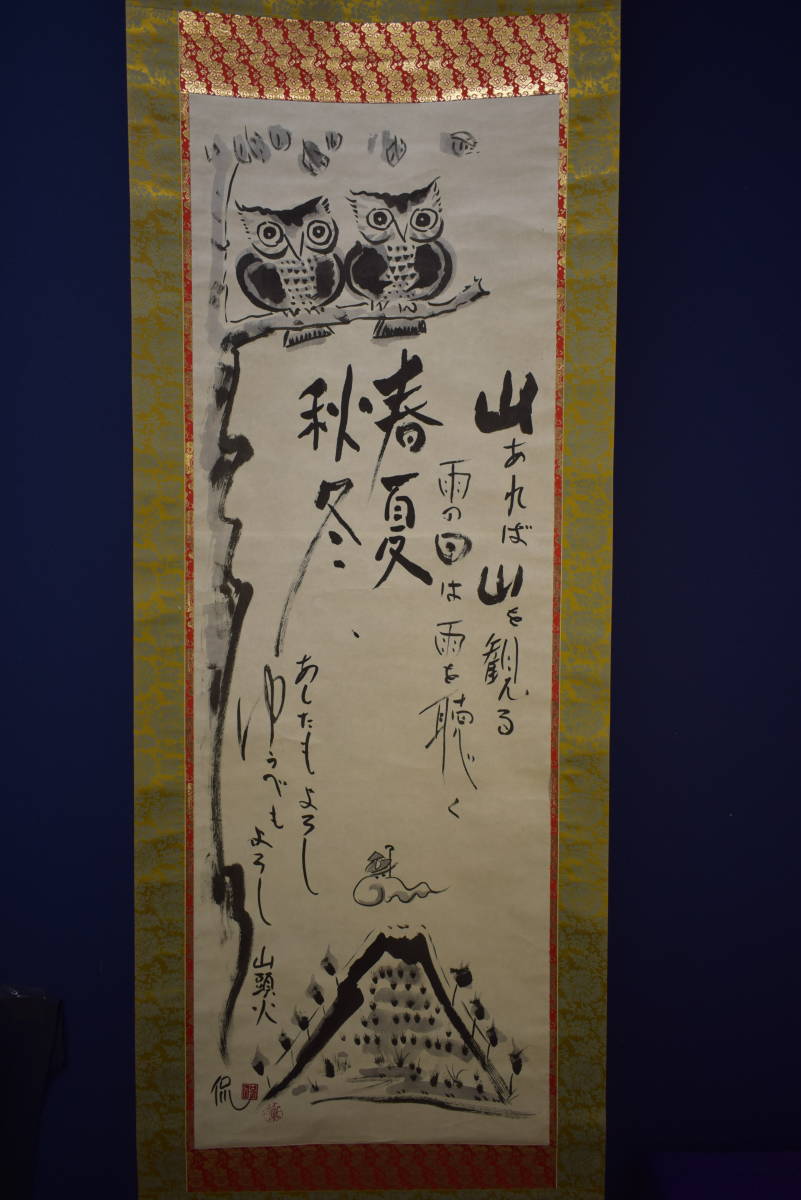 山あれば山を観る
雨の日は雨を聴く
春夏
秋冬
あしたもよろし
ゆうべもよろし
山頭火
侃